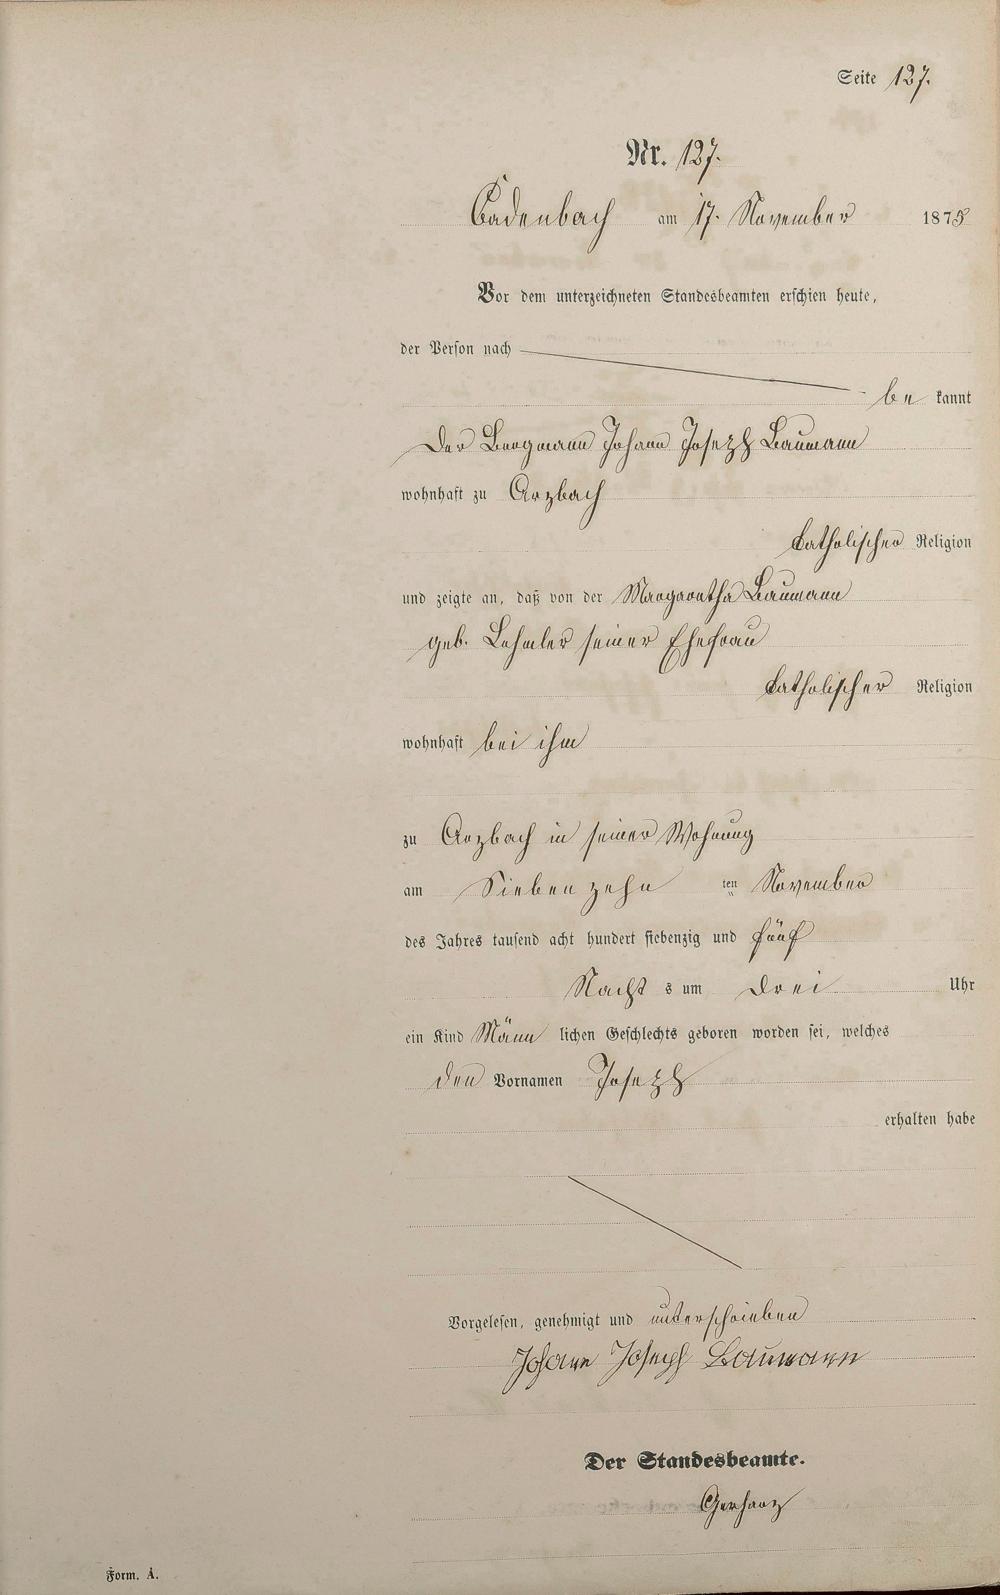 Seite 127.
Nr. 127.
Cadenbach am 17. November 1875
Vor dem unterzeichneten Standesbeamten erschien heute,
der Person nach
be kannt
der Bergmann Johann Joseph Baumann
wohnhaft zu Arzbach
katholischer Religion
und zeigte an, daß von der Margaretha Baumann
geb. Lehmler seiner Ehefrau
katholischer Religion
wohnhaft bei ihm
zu Arzbach in seiner Wohnung
am Siebenzehn ten November
des Jahres tausend acht hundert siebenzig und fünf
Nacht s um drei Uhr
ein Kind Männ lichen Geschlechts geboren worden sei, welches
den Vornamen Joseph
erhalten habe
Vorgelesen, genehmigt und unterschrieben
Johann Joseph Baumann
Der Standesbeamte.
Gerharz
Form. A.